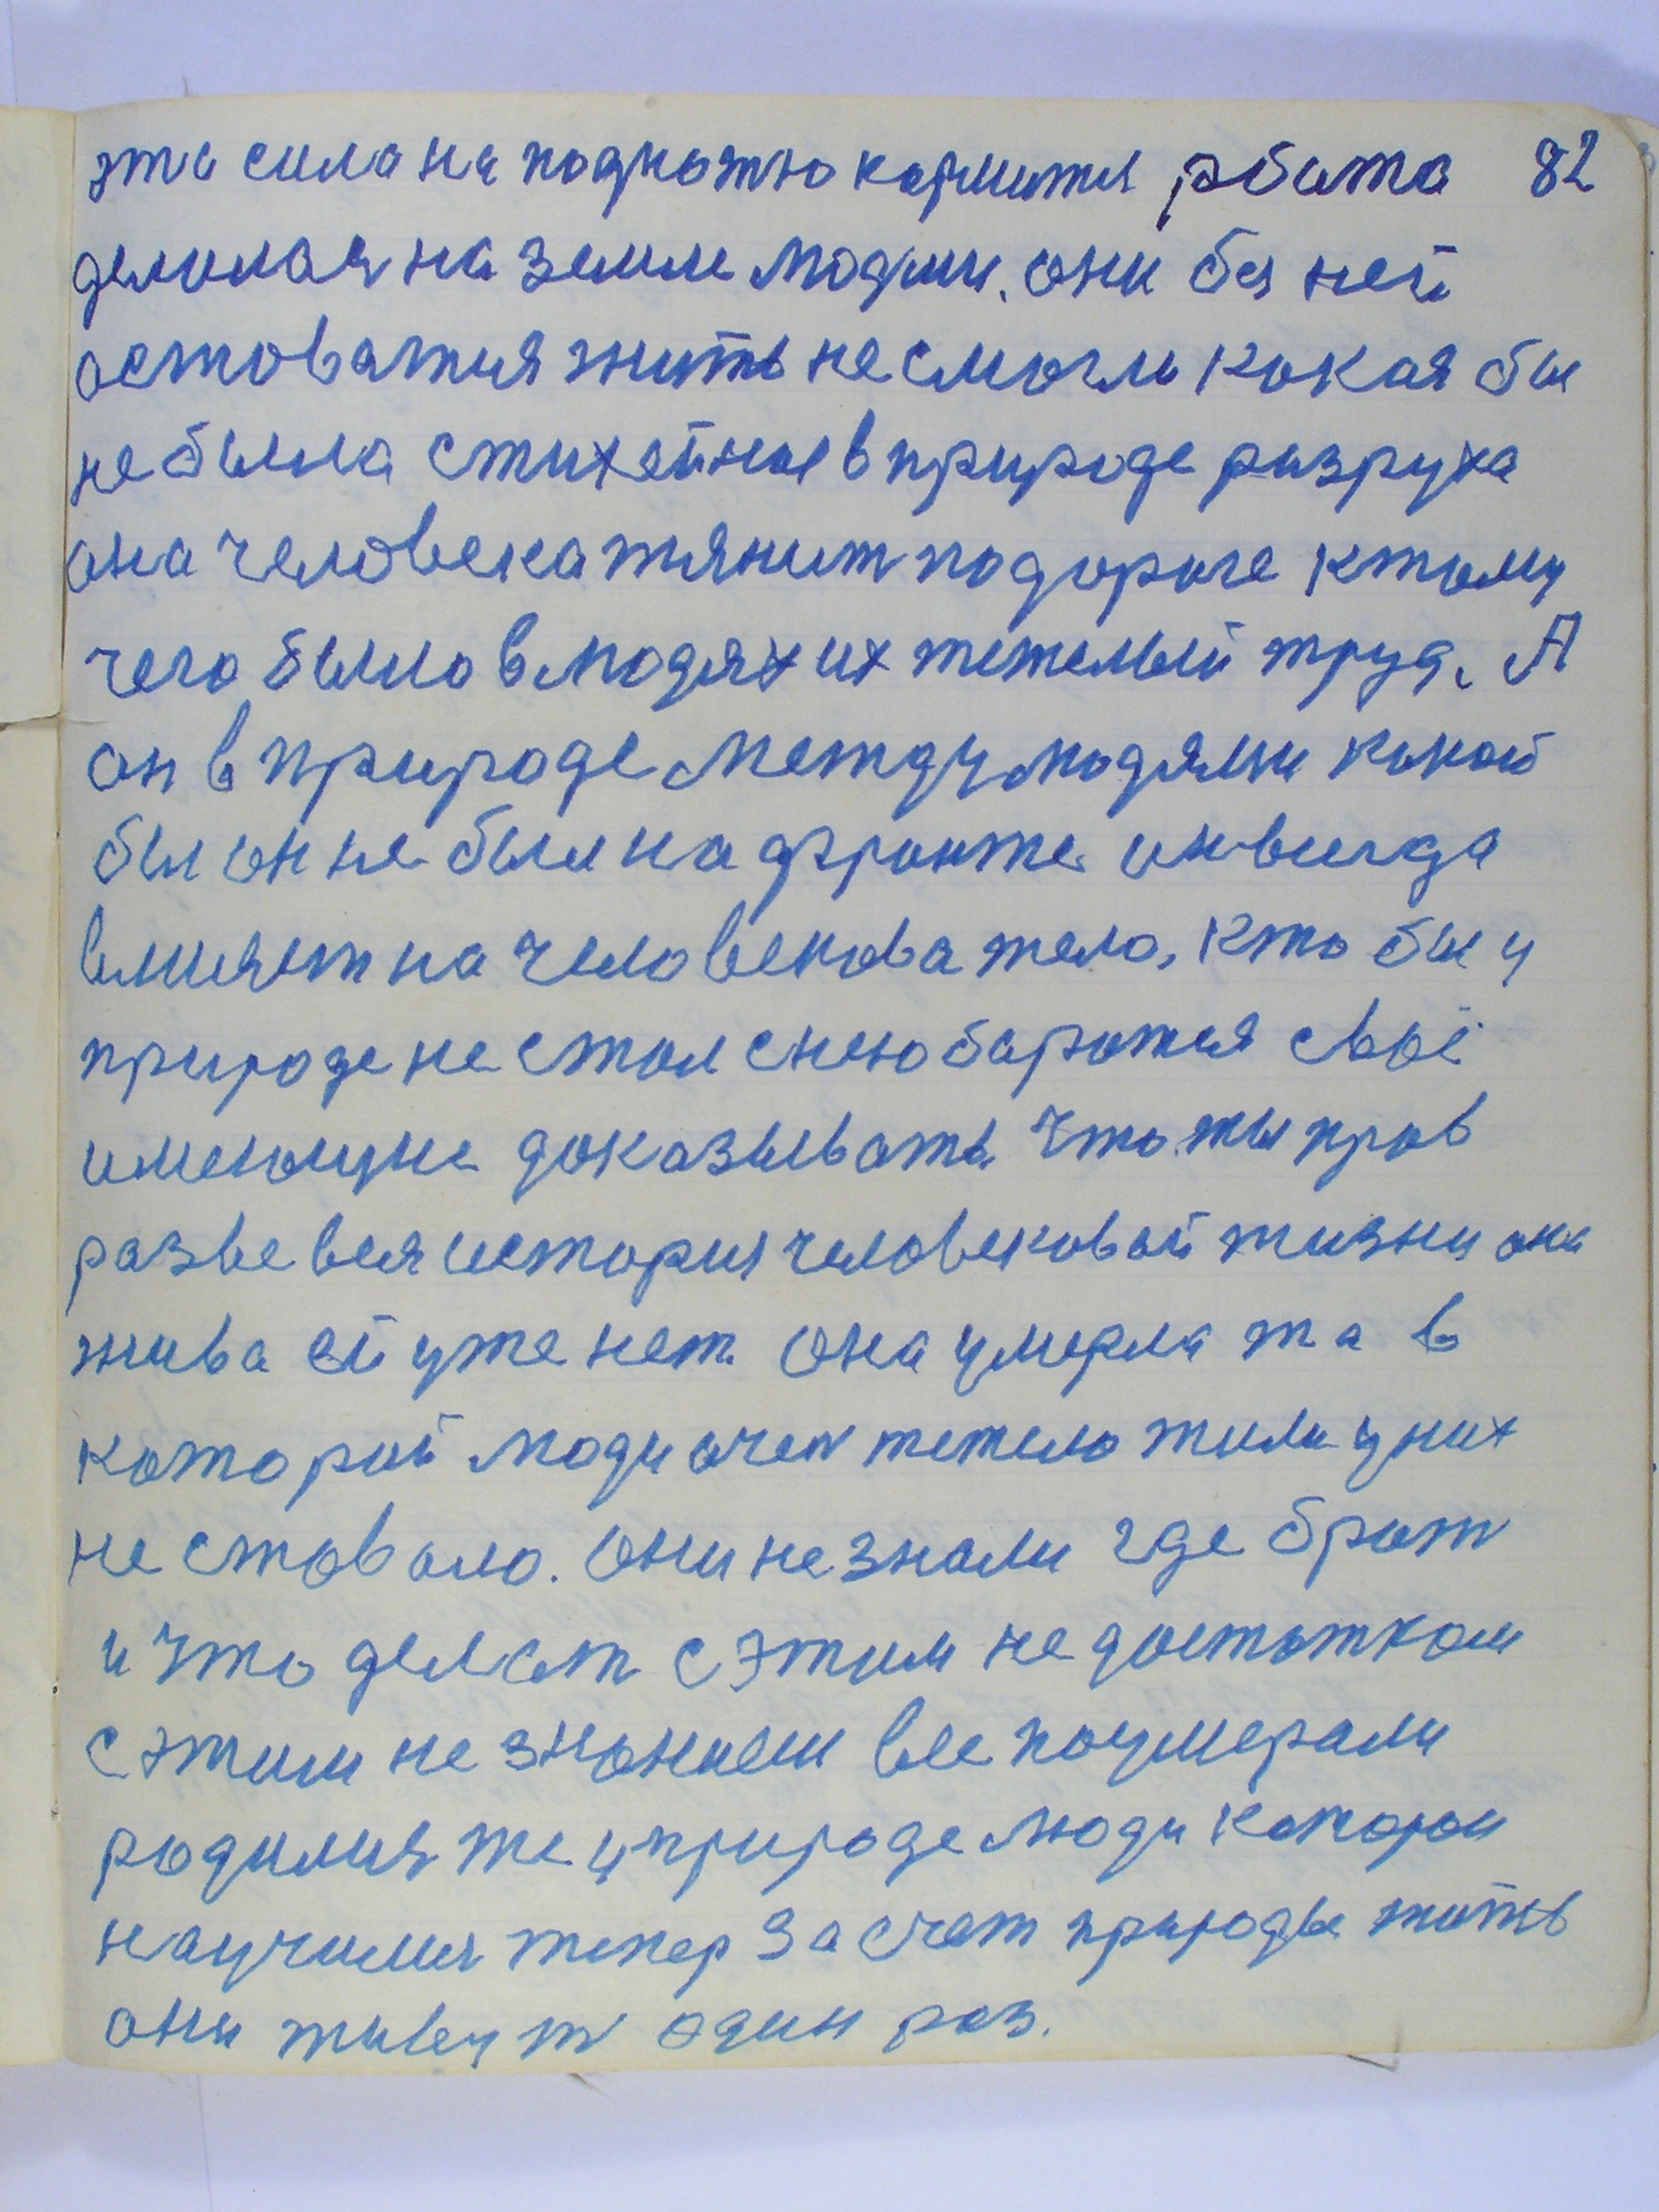 эта сила не поднятью кормится рбата 82
делилася на земле людми. они без ней
остоватися жить не смогли кокая бы
не была стихейные в природе разруха
она человека тянит по дороге к тому
чего было в людях их тежелый труд. А
он в природе между людями какой
бы он не был на фронте он всигда
влияет на человекова тело, кто бы у
природе не стал с нею баротся своё
имеющие доказывать. Что ты прав
разве вся история человековой жизни она
жива ей уже нет. она умерла та в
которой люди очен тежело жили у них
не стовало. они не знали где брат
и что делат с этим недостатком
с этим незнанием все поумерали
родилися же у природе люди которои
научился тепер за счет природы жить
они живут один раз.